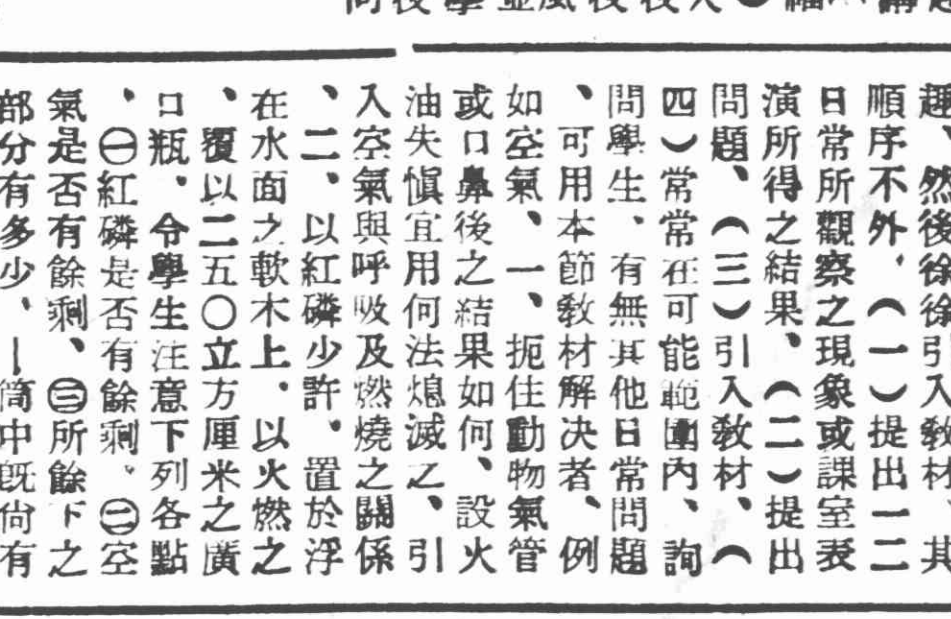 趣、然後徐徐引入敎材、其
順序不外、(一)提出一二
日常所觀察之現象或課室表
演所得之結果、(二)提出
問題、(三)引入敎材、(
四)常常在可能範圍內、詢
問學生、有無其他日常問題
、可用本節敎材解决者、例
如空氣、一、扼住動物氣管
或口鼻後之結果如何、設火
油失愼宜用何法熄滅之、引
入空氣與呼吸及燃燒之關係
、二、以紅磷少許。置於浮
在水面之軟木上、以火燃之
、覆以二五〇立方厘米之廣
口瓶、令學生注意下列各點
、㊀紅磷是否有餘剩。㊁空
氣是否有餘剩、㊂所餘下之
部分有多少、—筒中旣尙有